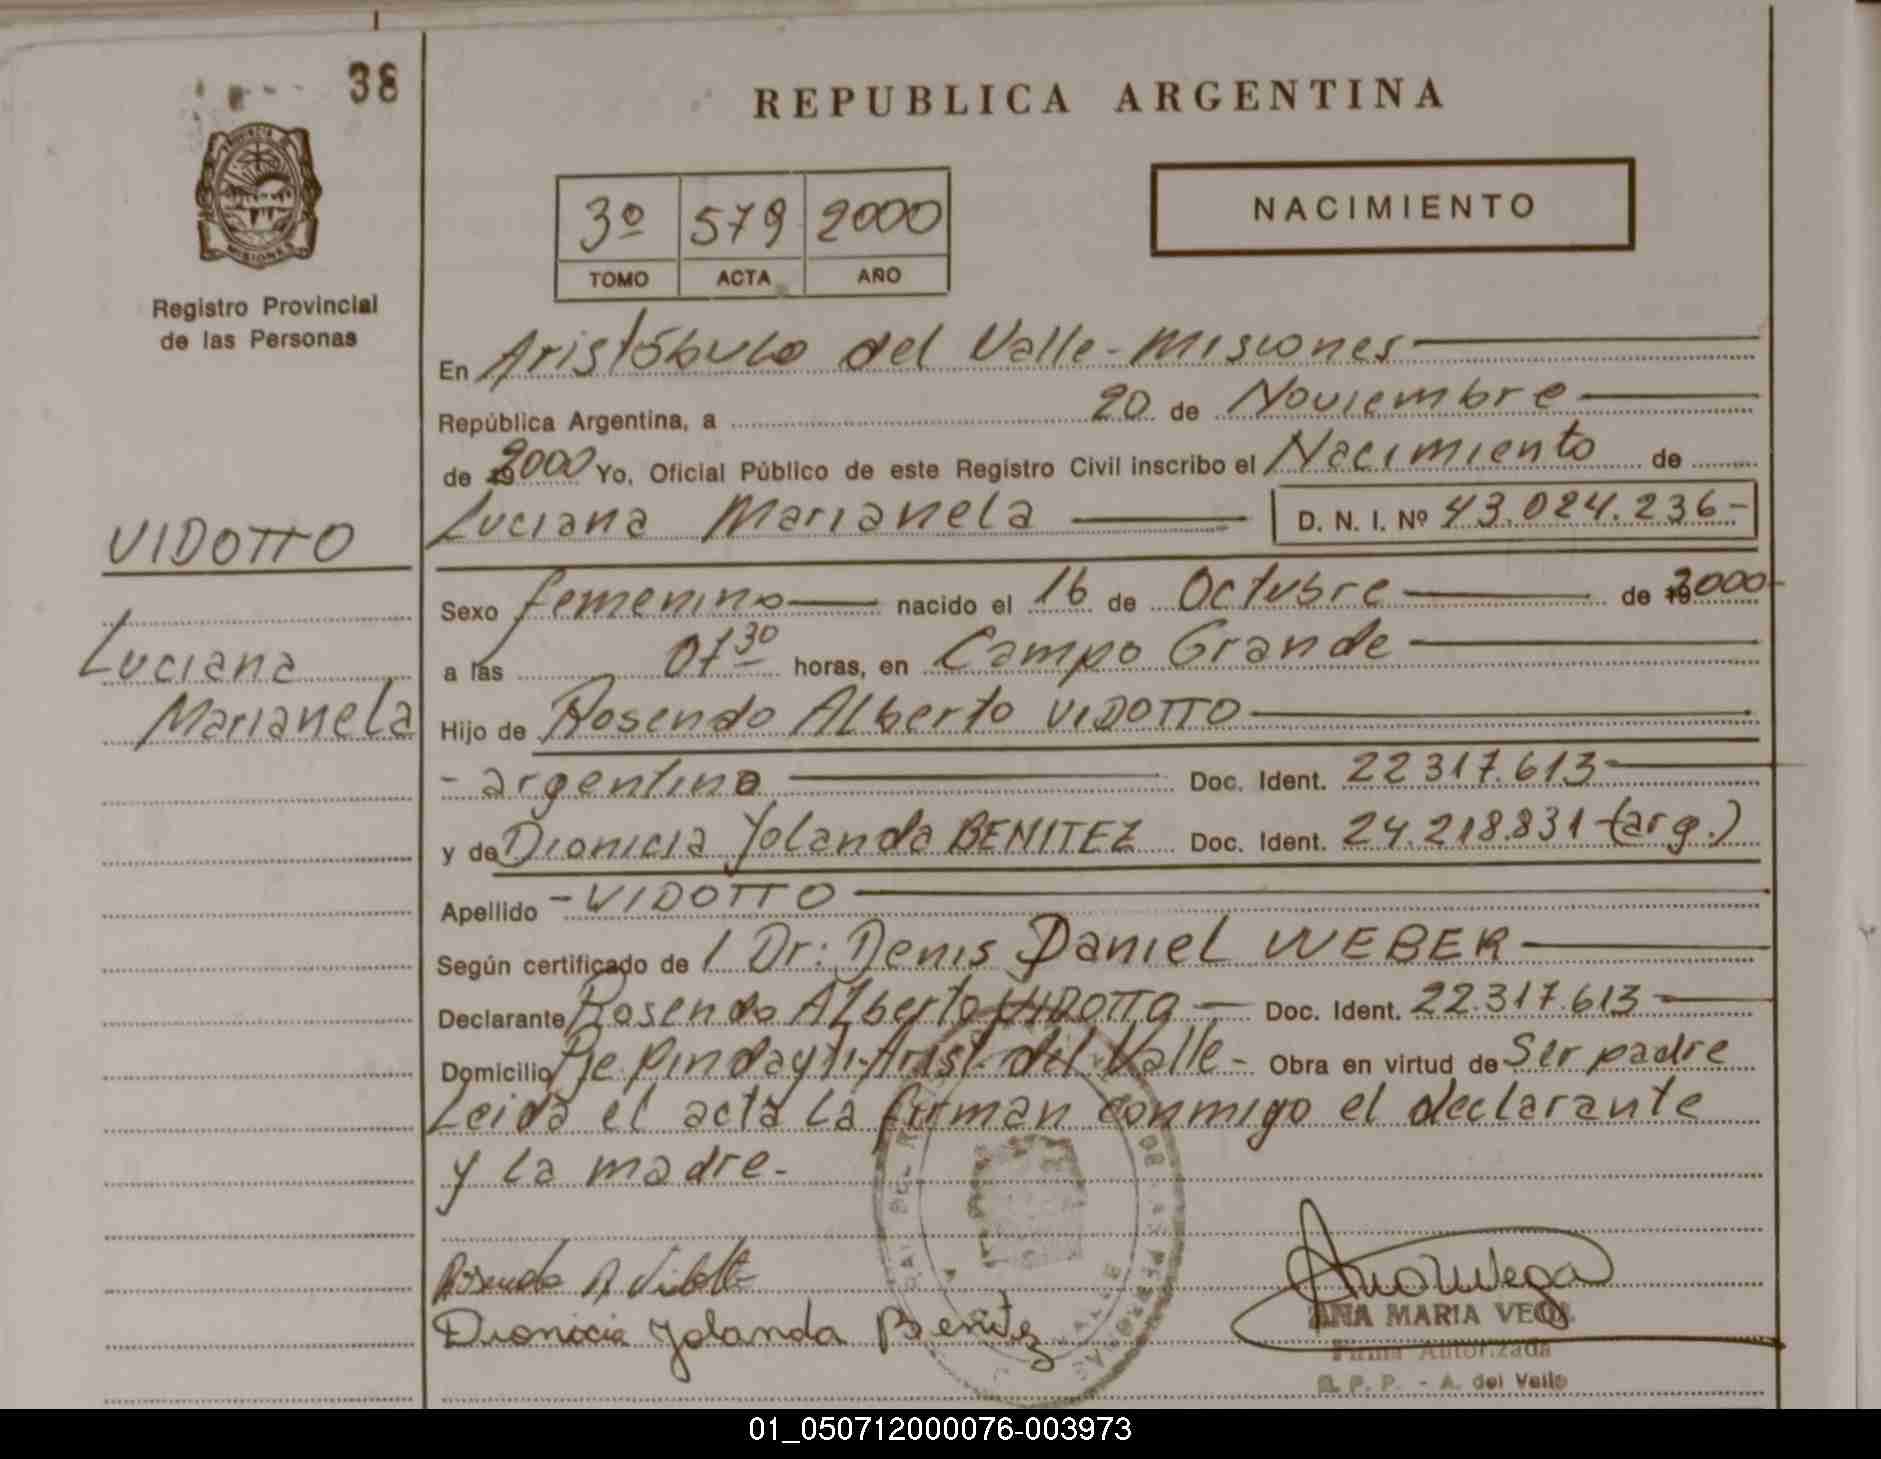 38
REPUBLICA ARGENTINA
PROVINCIA DE MISIONES
Registro Provincial
de las Personas
3º 579 2000
TOMO ACTA AÑO
NACIMIENTO
En Aristóbulo del Valle - Misiones
República Argentina, a 20 de Noviembre
de 2000 Yo, Oficial Público de este Registro Civil inscribo el Nacimiento de
Luciana Marianela D. N. I. Nº 43.024.236-
VIDOTTO
Luciana
Marianela
Sexo femenino nacido el 16 de Octubre de 2000-
a las 07 30 horas, en Campo Grande
Hijo de Rosendo Alberto VIDOTTO
- argentino Doc. Ident. 22.317.613
y de Dionicia Yolanda BENITEZ Doc. Ident. 24.218.831 (arg.)
Apellido - VIDOTTO
Según certificado de l Dr: Denis Daniel WEBER
Declarante Rosendo Alberto VIDOTTO - Doc. Ident. 22.317.613
Domicilio Pje Pindayti-Arist. del Valle - Obra en virtud de Ser padre
Leida el acta la firman conmigo el declarante
y la madre.-
Rosendo A Vidotto
Dionicia Yolanda Benitez
ANA MARIA VEGA
Firma Autorizada
R. P. P. - A. del Valle
01_050712000076-003973